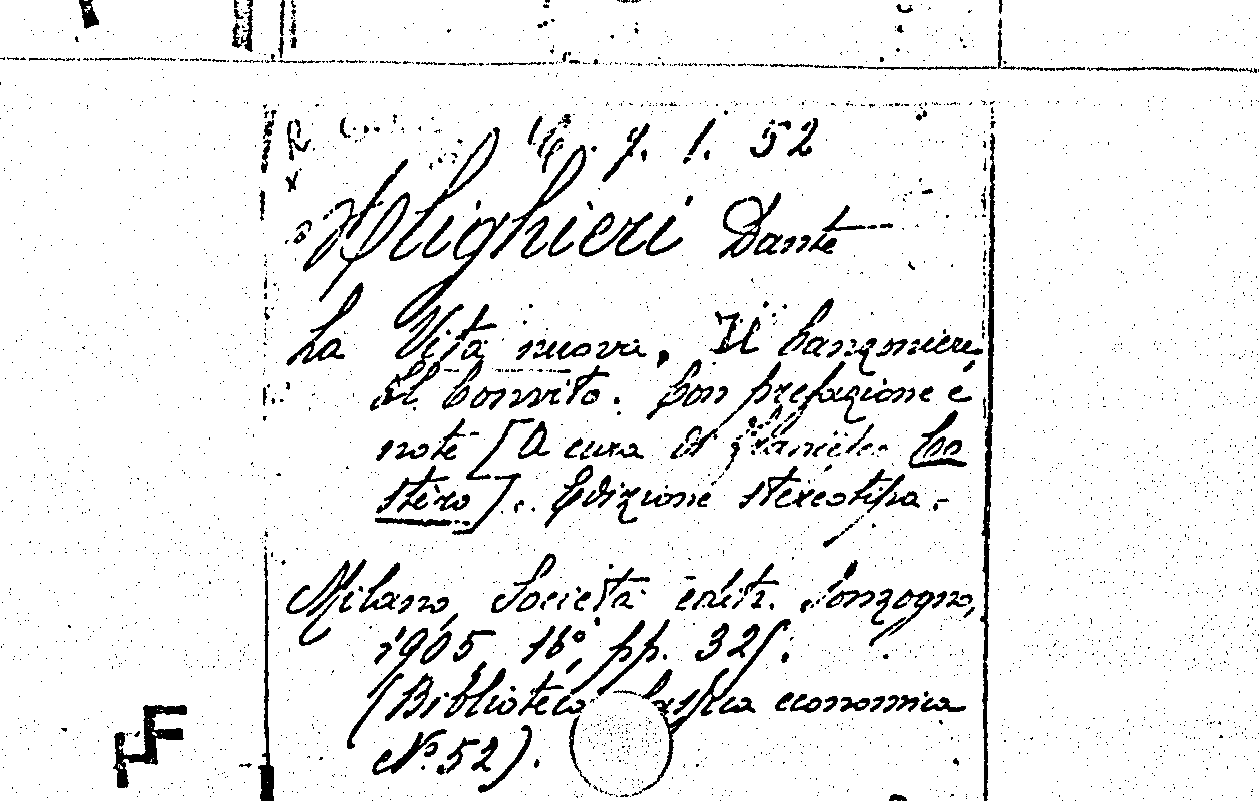 7. 1. 52
Alighieri Dante
La Vita nuova, Il Canzoniere,
Il Convito. Con prefazione e
note [A cura di Co
stero]. Edizione stereotipa.-
Milano, Società editr. Sonzogno,
1905, 16°, pp. 325.
(Biblioteca economica
N° 52).